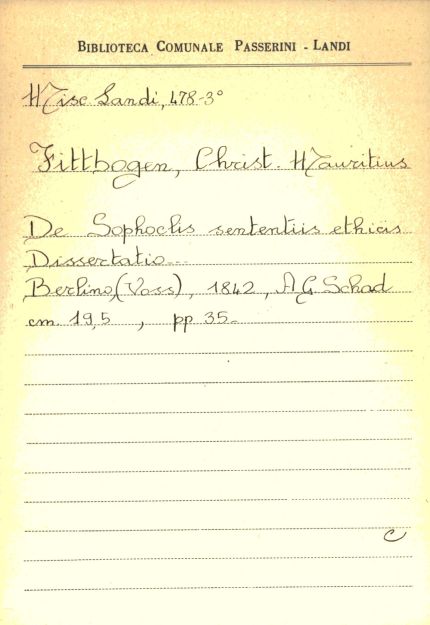 BIBLIOTECA COMUNALE PASSERINI - LANDI
Misc Landi, 478-3°
Fittbogen, Christ. Mauritius
De Sophoclis sententiis ethicis
Dissertatio...
Berlino, (Voss), 1842, A G Schad
cm 19,5 , pp 35.
C